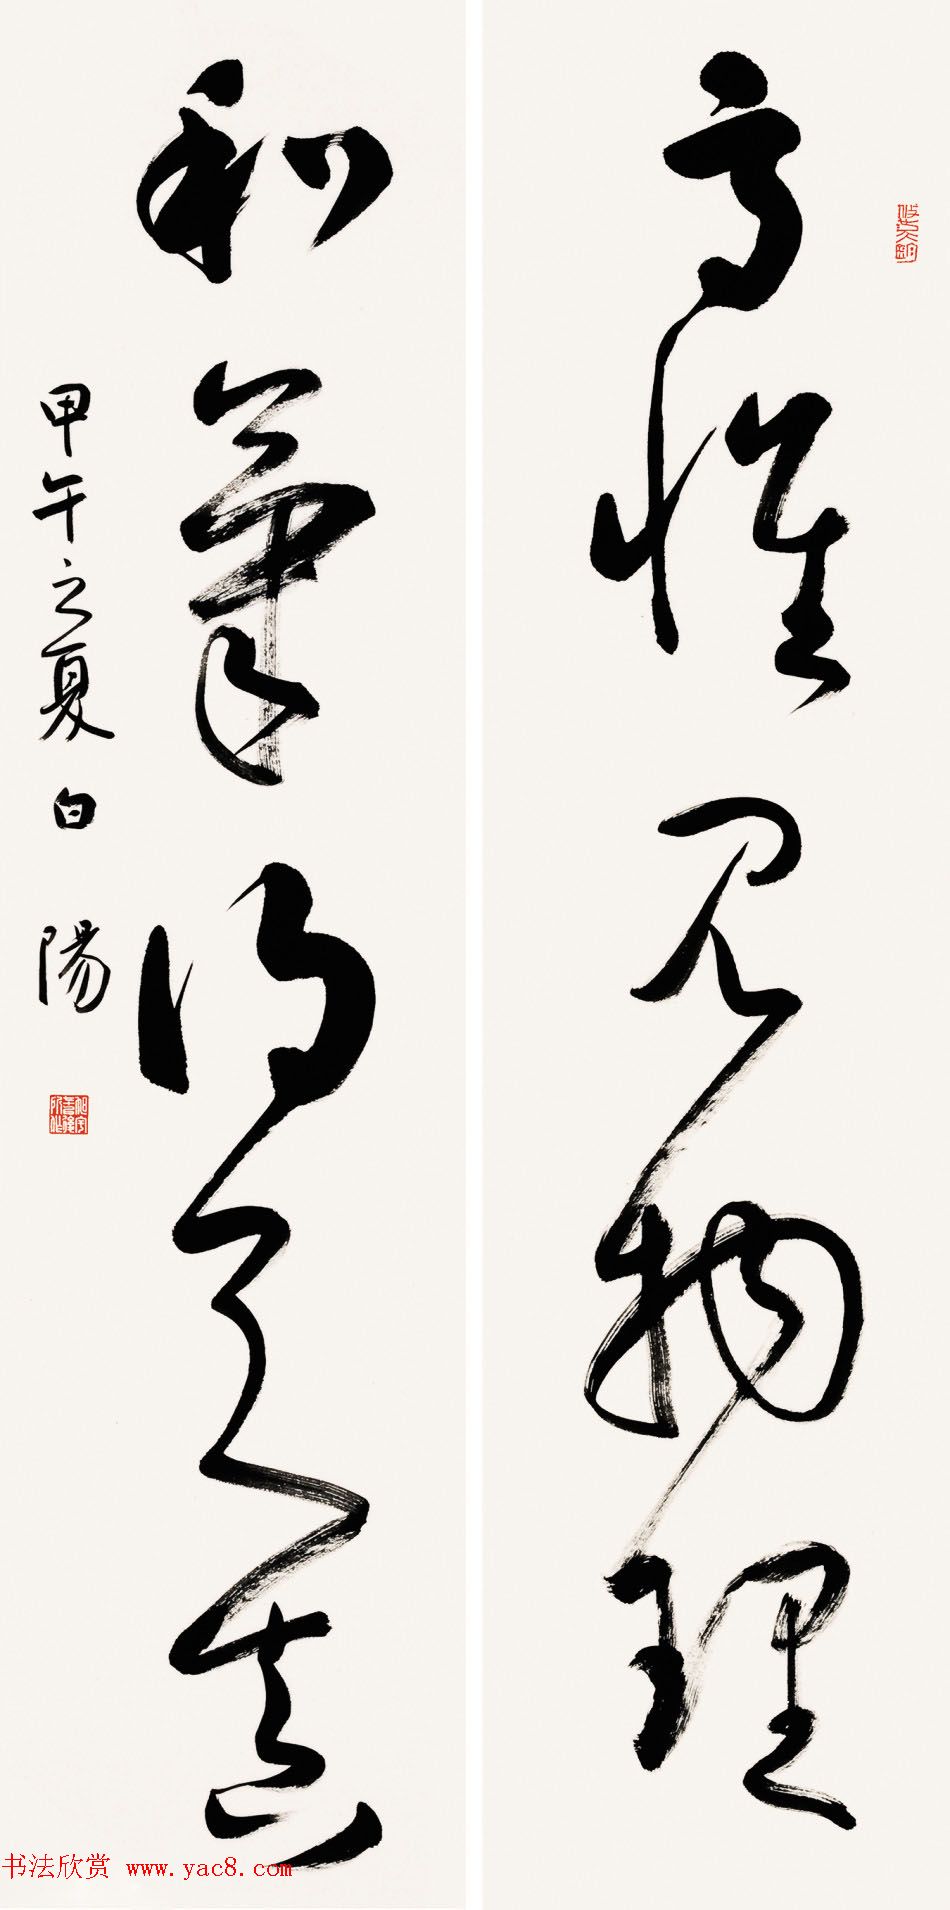 高怀见物理
和气得天真
甲午之夏白阳
书法欣赏 www.yac8.com